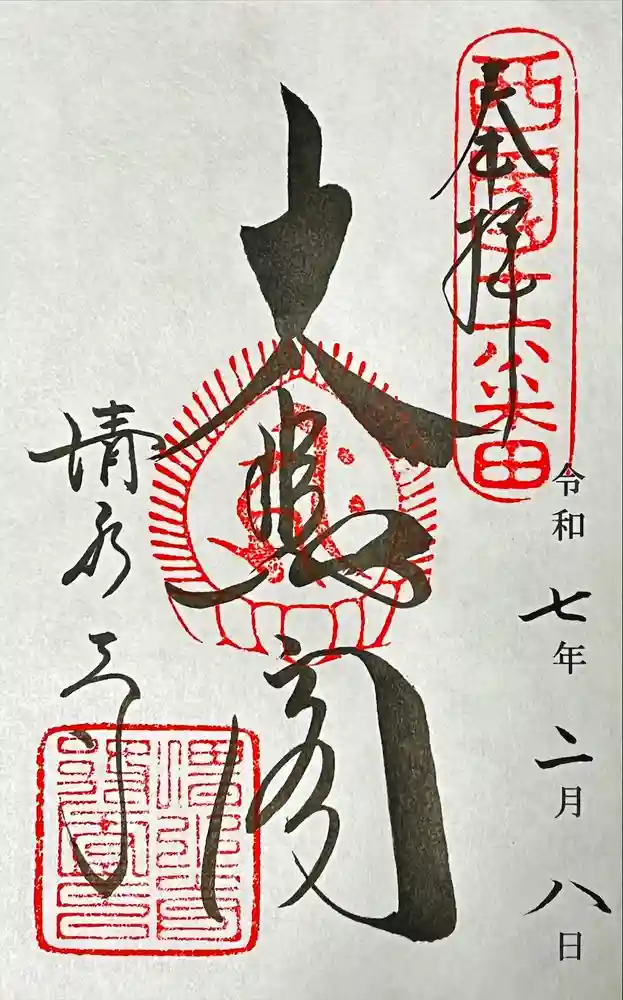 奉拝
西国十六番
令和 七年 二月 八日
大悲閣
清水寺